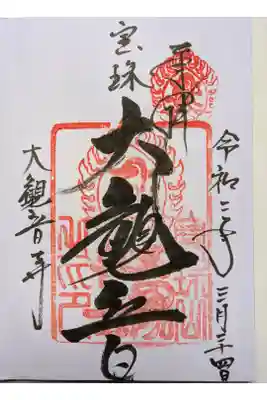 奉拝
令和二年三月二十四日
宝珠
大観音
大観音寺